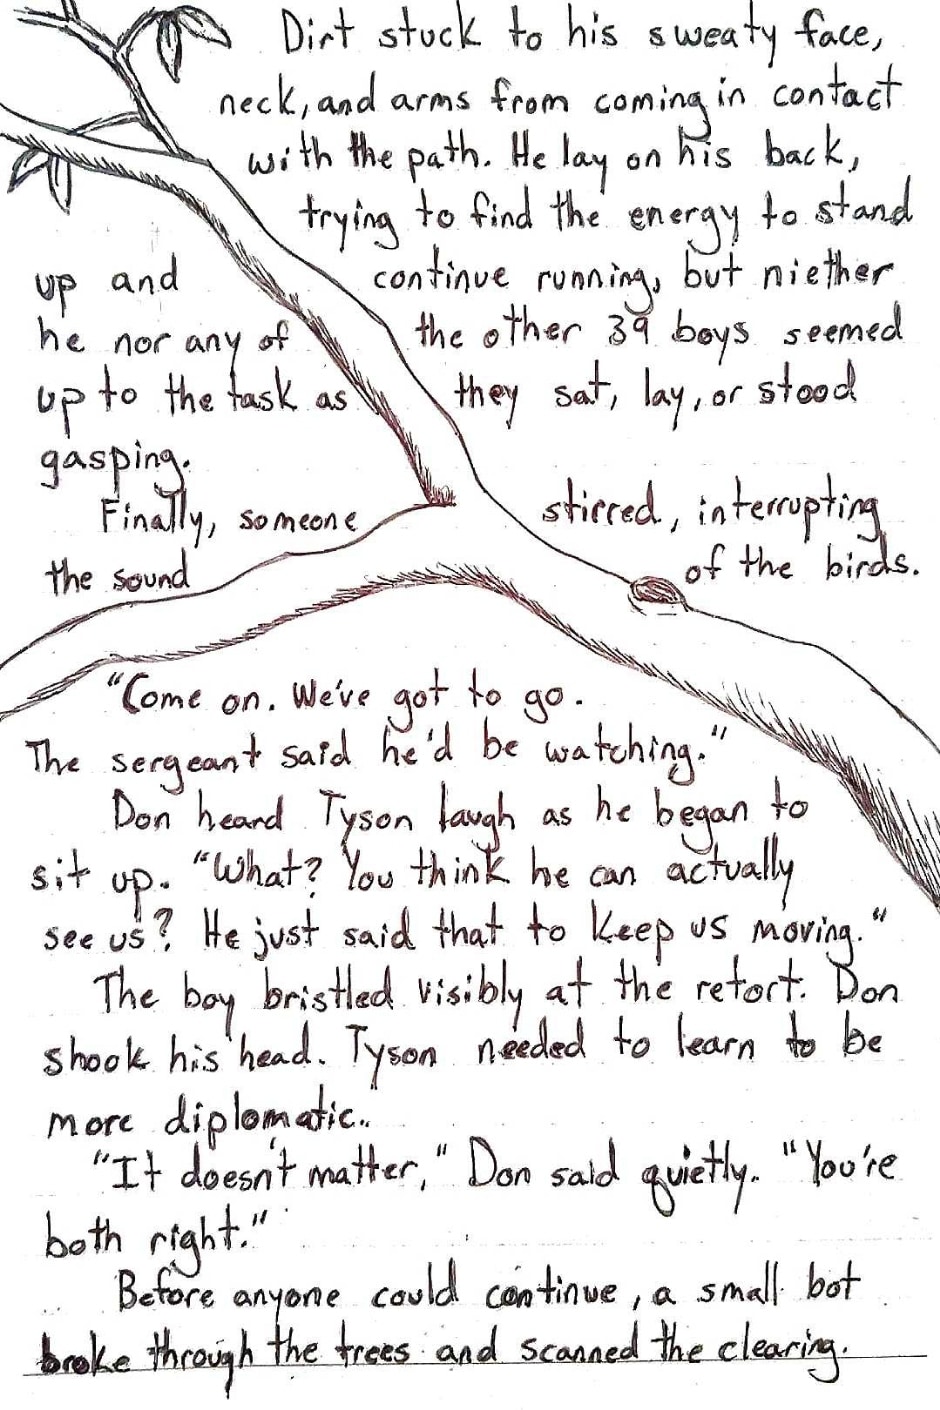 Dirt stuck to his sweaty face,
neck, and arms from coming in contact
with the path. He lay on his back,
trying to find the energy to stand
up and continue running, but niether
he nor any of the other 39 boys seemed
up to the task as they sat, lay, or stood
gasping.
Finally, someone stirred, interrupting
the sound of the birds.
"Come on. We've got to go.
The sergeant said he'd be watching."
Don heard Tyson laugh as he began to
sit up. "What? You think he can actually
see us? He just said that to keep us moving."
The boy bristled visibly at the retort. Don
shook his head. Tyson needed to learn to be
more diplomatic.
"It doesn't matter," Don said quietly. "You're
both right."
Before anyone could continue, a small bot
broke through the trees and scanned the clearing.